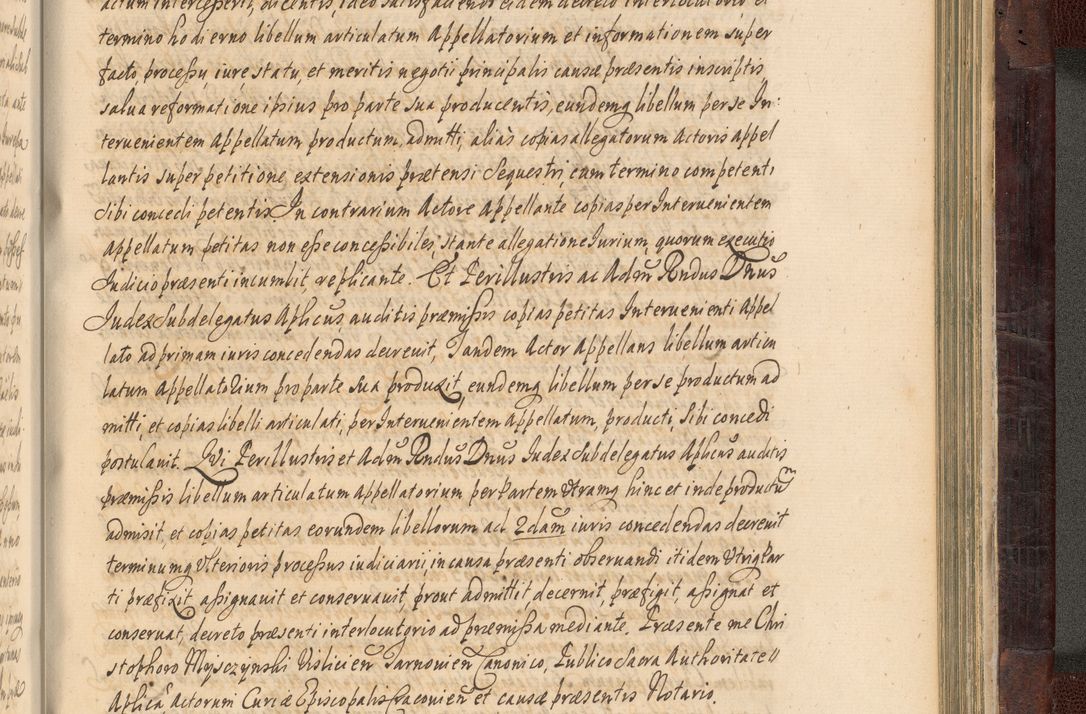 actum intercesserit, dicentis, ideo satisfaciendo eidem decreto interlocutorio et
termino hodierno libellum articulatum Appellatorium et informationem super
facto, processu, iure statu, et meritis negotii principalis causæ præsentis inscriptis
salua reformatione ipsius pro parte sua producentis, eundemq libellum per se In:
teruenientem Appellatum productum, admitti, aliàs copias allegatorum Actoris appel
lantis super petitione extensionis prætensi Sequestri, cum termino competenti
sibi concedi petentis. In contrarium Actore Appellante copias per Interuenientem
appellatum petitas non esse concessibiles, stante allegatione Iurium, quorum executio
Iudicio præsenti incumbit, replicante. Et Perillustris ac Adm̃ Rndus Dnus
Iudex Subdelegatus Aplicus, auditis præmissis copias petitas Interuenienti Appel
lato ad primam iuris concedendas decreuit, Tandem Actor Appellans libellum articu
latum Appellatorium pro parte sua produxit, eundemq libellum per se productum ad
mitti, et copias libelli articulati, per Interuenientem Appellatum, producti, sibi concedi
postulauit. Qui Perillustris et Adm̃ Rndus Dnus Iudex Subdelegatus Aplicus auditis
præmissis libellum articulatum Appellatorium per Partem Vtramq hinc et inde productũ
admisit, et copias petitas eorundem libellorum ad 2dam iuris concedendas decreuit
terminumq Vlterioris processus iudiciarii, in causa præsenti obseruandi itidem Vtriq Par
ti præfixit assignauit et conseruauit, prout admittit, decernit, præfigit, assignat et
conseruat, decreto præsenti interlocutorio ad præmissa mediante. Præsente me Chri
stophoro Mysczynski Visliciens̃ Tarnouiens̃ Canonico, Publico Sacra Authoritate
Aplica Actorum Curiæ Episcopalis Cracouiens̃ et causæ præsentis Notario.